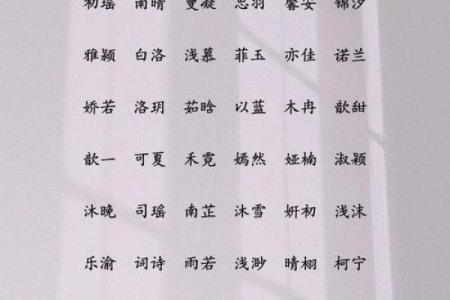 初瑶 南晴 曼凝 思羽 馨安 锦汐
雅颖 白洛 浅慕 菲玉 亦佳 诺兰
娇若 洛玥 茹晗 以蓝 木冉 歆甜
歆一 可夏 禾霓 嫣然 娅楠 淑颖
沐晚 司瑶 南芷 沐雪 妍初 浅沫
乐渝 词诗 雨若 浅渺 晴栩 柯宁